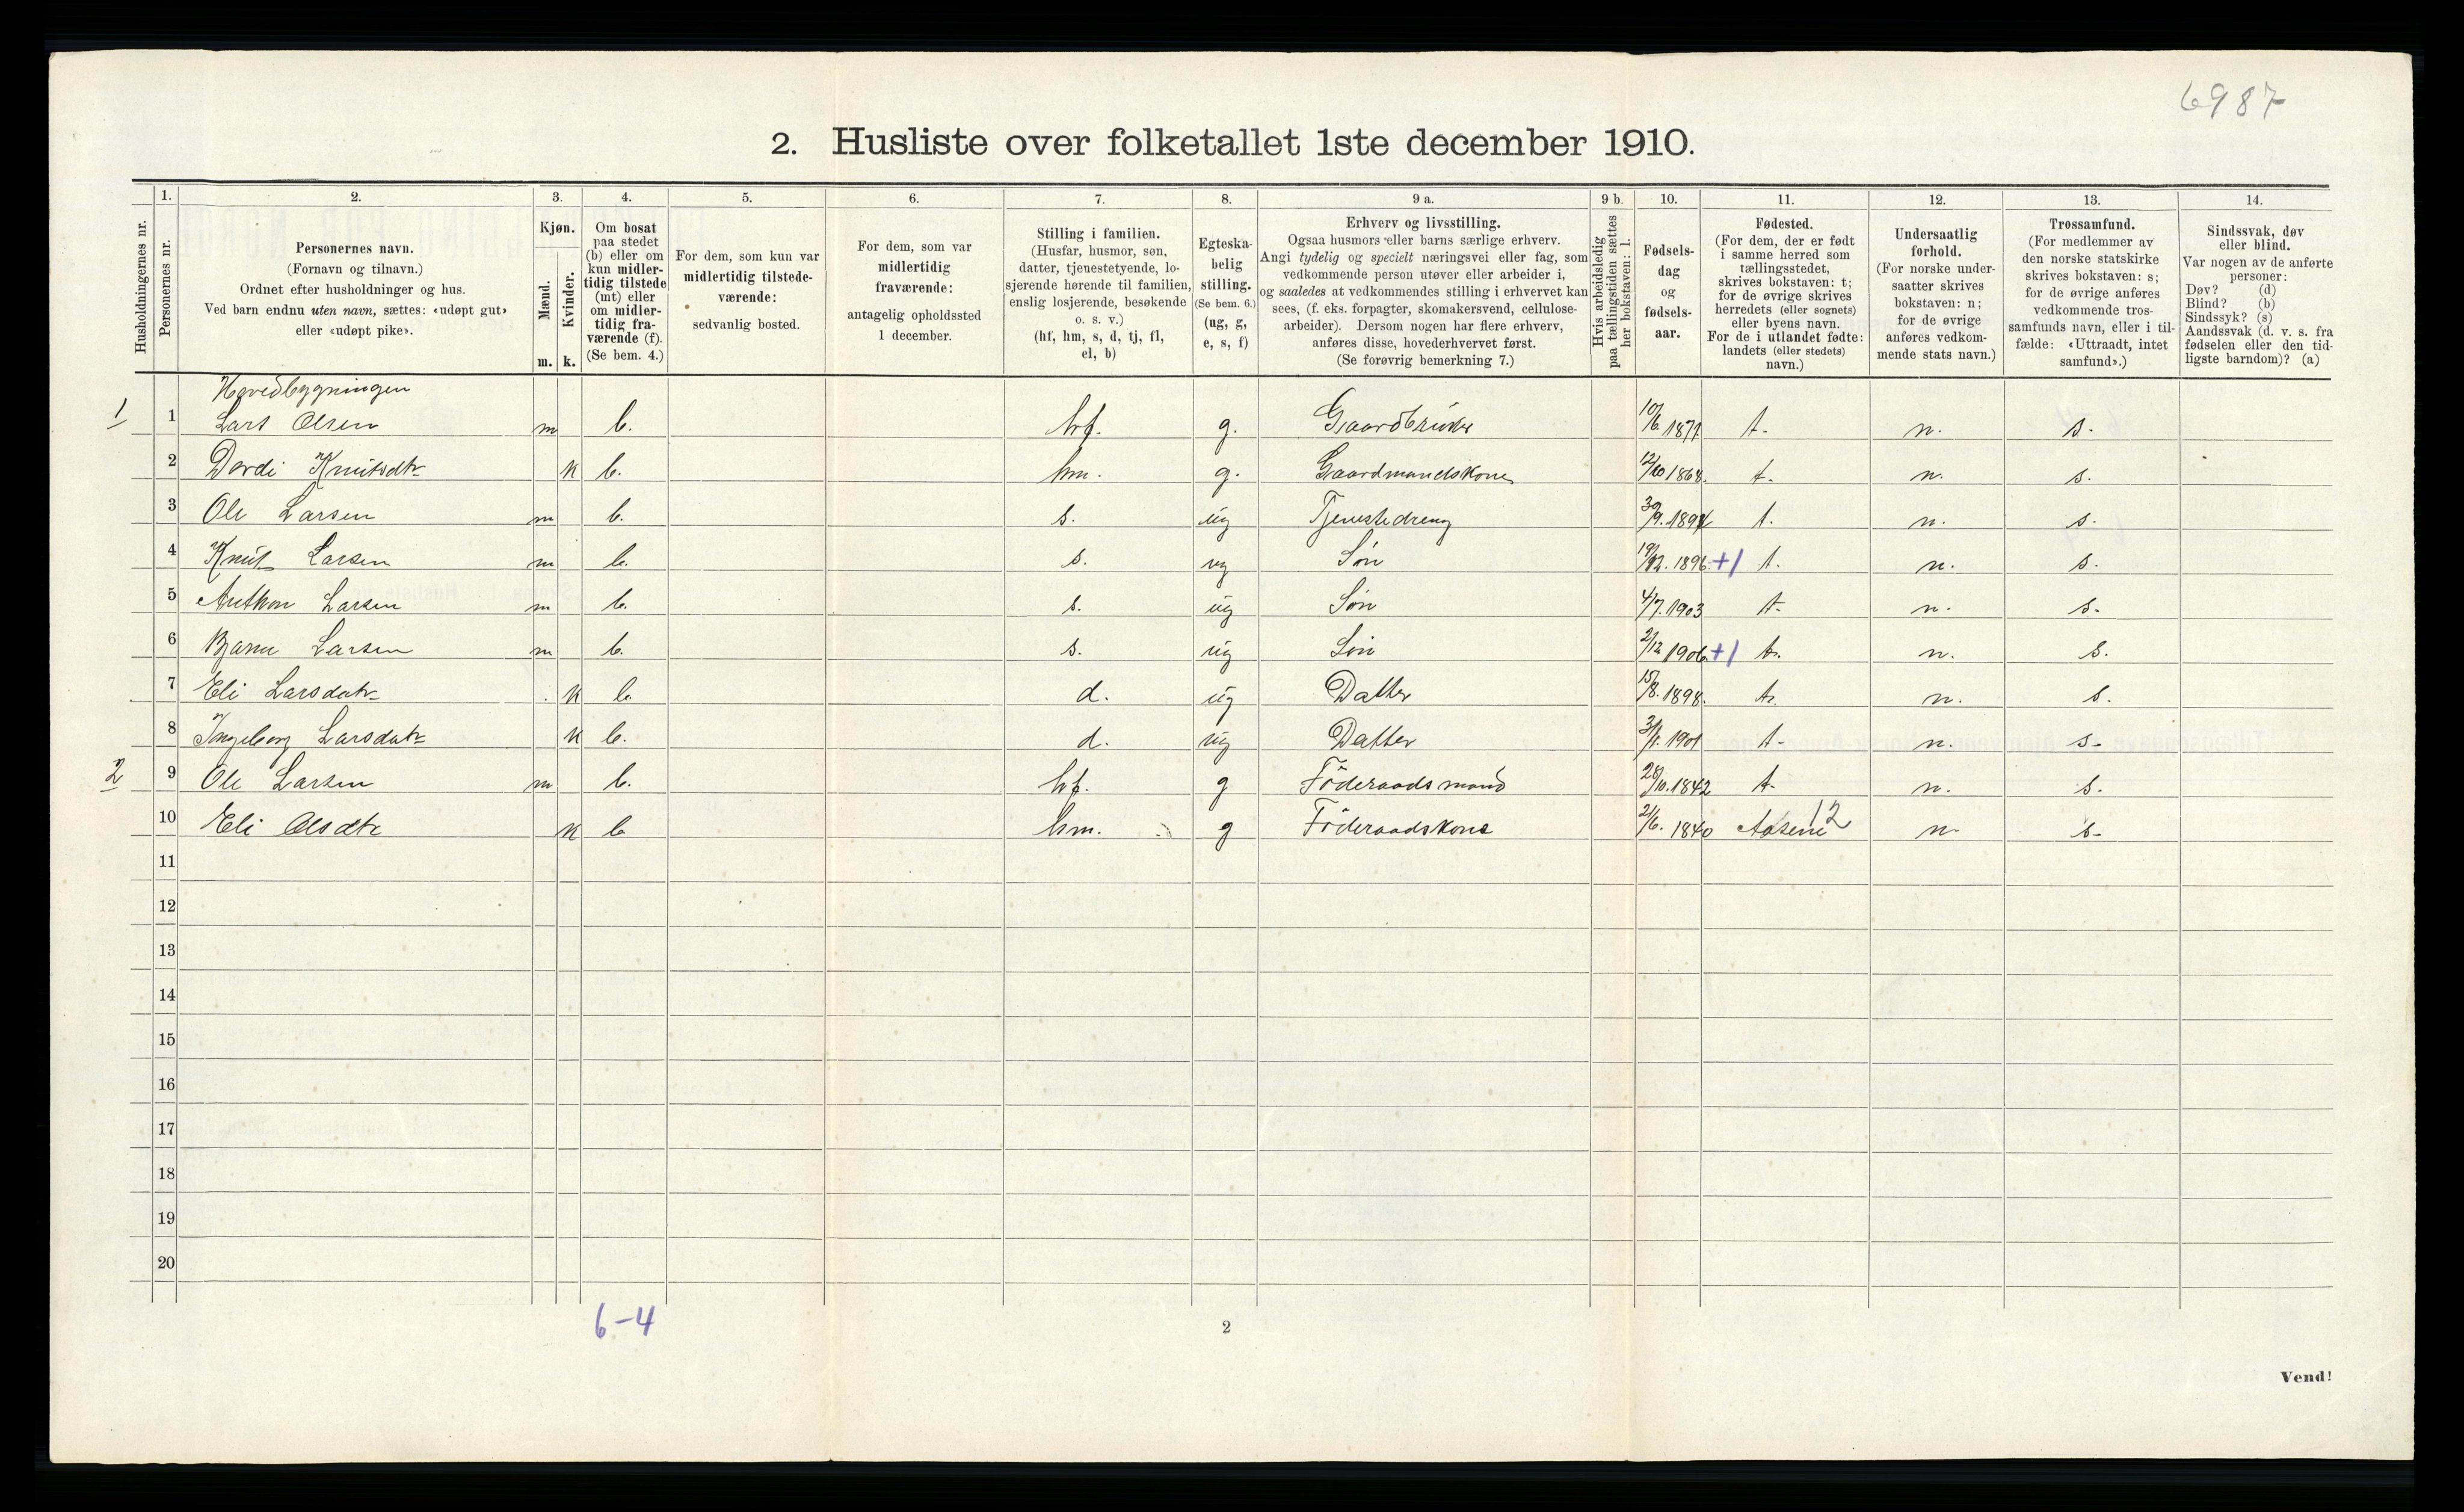 6987
2. Husliste over folketallet 1ste december 1910.
Husholdningernes nr.
1.
Personernes nr.
2.
Personernes navn.
(Fornavn og tilnavn.)
Ordnet efter husholdninger og hus.
Ved barn endnu uten navn, sættes: «udøpt gut»
eller «udøpt pike».
3.
Kjøn.
Mænd.
Kvinder.
m. k.
4.
Om bosat
paa stedet
(b) eller om
kun midler-
tidig tilstede
(mt) eller
om midler-
tidig fra-
værende (f).
(Se bem. 4.)
5.
For dem, som kun var
midlertidig tilstede-
værende:
sedvanlig bosted.
6.
For dem, som var
midlertidig
fraværende:
antagelig opholdssted
1 december.
7.
Stilling i familien.
(Husfar, husmor, søn,
datter, tjenestetyende, lo-
sjerende hørende til familien,
enslig losjerende, besøkende
o. s. v.)
(hf, hm, s, d, tj, fl,
el, b)
8.
Egteska-
belig
stilling.
(Se bem. 6.)
(ug, g,
e, s, f)
9 a.
Erhverv og livsstilling.
Ogsaa husmors eller barns særlige erhverv.
Angi tydelig og specielt næringsvei eller fag, som
vedkommende person utøver eller arbeider i,
og saaledes at vedkommendes stilling i erhvervet kan
sees, (f. eks. forpagter, skomakersvend, cellulose-
arbeider). Dersom nogen har flere erhverv,
anføres disse, hovederhvervet først.
(Se forøvrig bemerkning 7.)
9 b.
Hvis arbeidsledig
paa tællingstiden sættes
her bokstaven: l.
10.
Fødsels-
dag
og
fødsels-
aar.
11.
Fødested.
(For dem, der er født
i samme herred som
tællingsstedet,
skrives bokstaven: t;
for de øvrige skrives
herredets (eller sognets)
eller byens navn.
For de i utlandet fødte:
landets (eller stedets)
navn.)
12.
Undersaatlig
forhold.
(For norske under-
saatter skrives
bokstaven: n;
for de øvrige
anføres vedkom-
mende stats navn.)
13.
Trossamfund.
(For medlemmer av
den norske statskirke
skrives bokstaven: s;
for de øvrige anføres
vedkommende tros-
samfunds navn, eller i til-
fælde: «Uttraadt, intet
samfund».)
14.
Sindssvak, døv
eller blind.
Var nogen av de anførte
personer:
Døv? (d)
Blind? (b)
Sindssyk? (s)
Aandssvak (d. v. s. fra
fødselen eller den tid-
ligste barndom)? (a)
Hovedbygningen
1 1 Lars Olsen m b. hf. g. Gaardbruker 10/6. 1871 t. n. s.
2 Dordi Knutsdtr k b. hm. g. Gaardmandskone 12/10 1868. t. n. s.
3 Ole Larsen m b. s. ug Tjenestedreng 30/9. 1894 t. n. s.
4 Knut Larsen m b. s. ug Søn 19/12. 1896 +1 t. n. s.
5 Anthon Larsen m b. s. ug Søn 4/7. 1903 t. n. s.
6 Larsen m b. s. ug Søn 2/12 1906 +1 t. n. s.
7 Eli Larsdatr k b. d. ug Datter 15/8. 1898. t. n. s.
8 Ingeborg Larsdatr k b. d. ug Datter 1901 t. n. s.
2 9 Ole Larsen m b. hf. g Föderaadsmand 28/10. 1842 t. n. s.
10 Eli Olsdtr k b hm. g Föderaadskone 21/6. 1840 Aasene 12 n. s.
11
12
13
14
15
16
17
18
19
20
6-4
2
Vend!